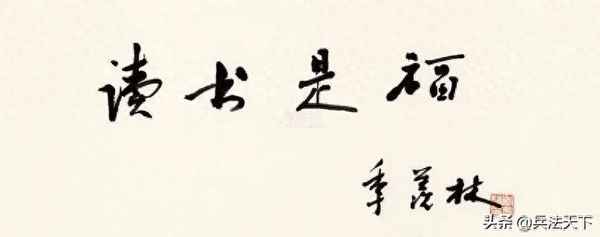 读书是福
季羡林
头条 @兵法天下